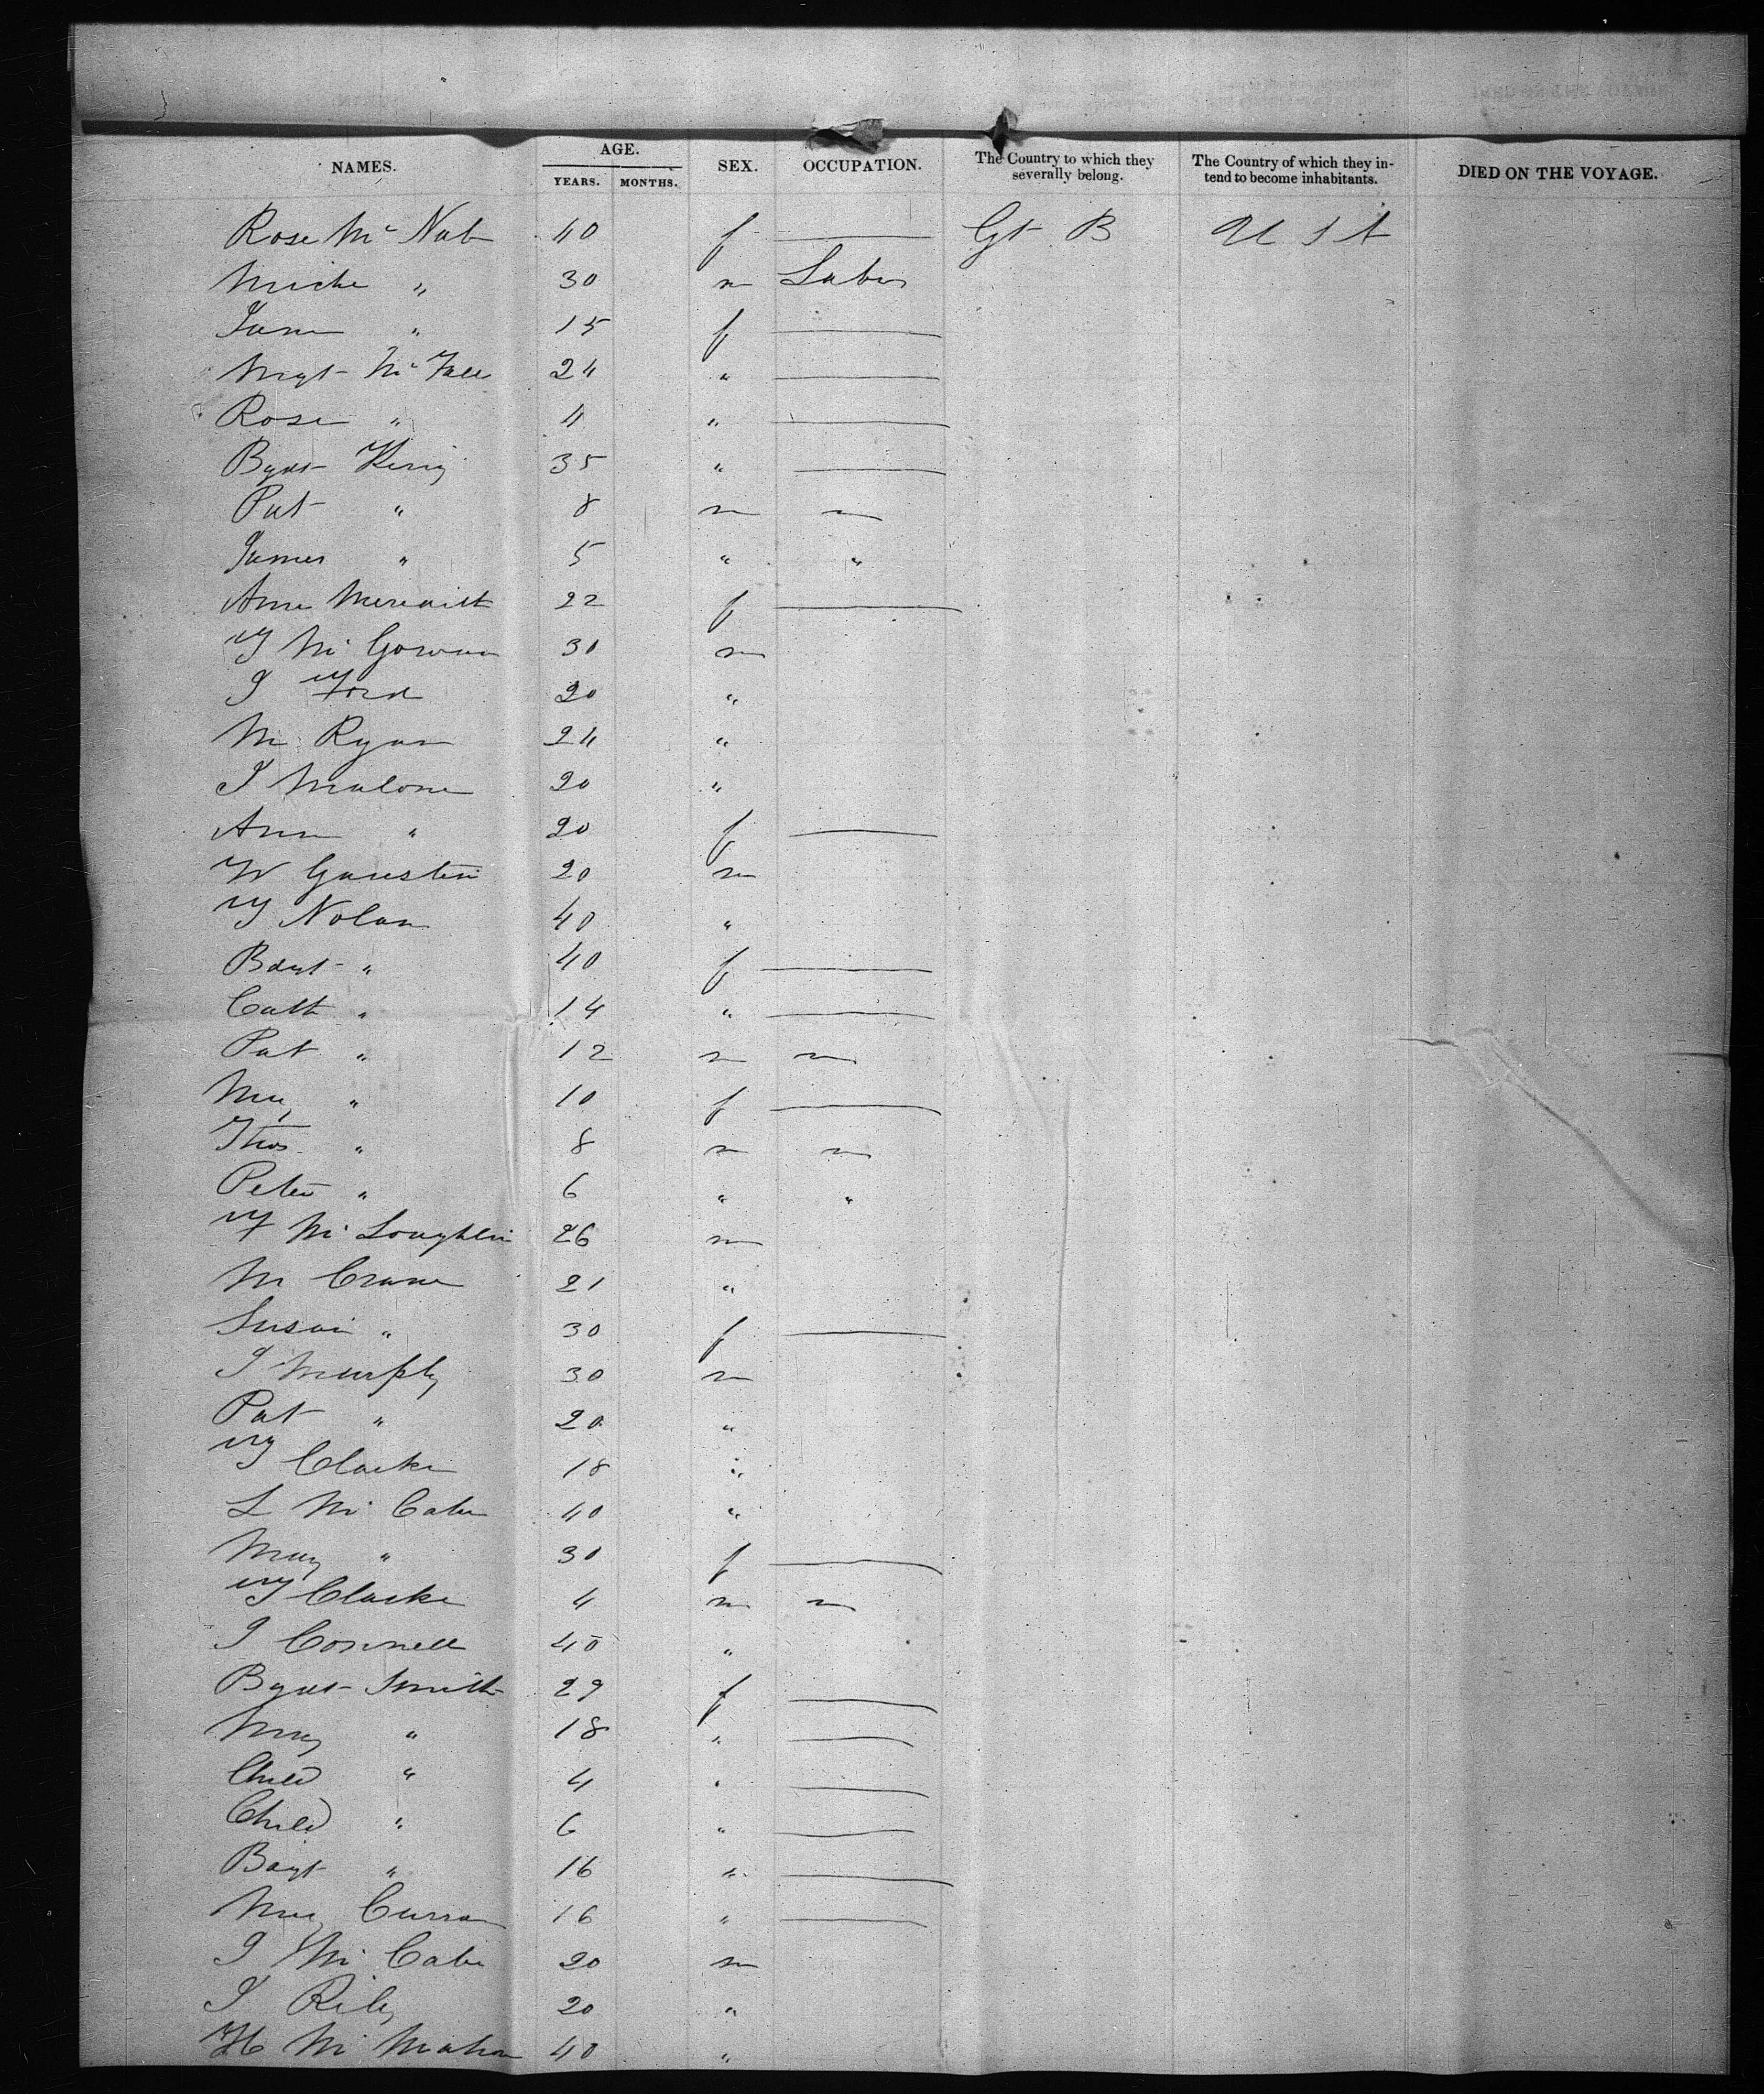 NAMES. AGE. YEARS. MONTHS. SEX. OCCUPATION. The Country to which they severally belong. The Country of which they intend to become inhabitants. DIED ON THE VOYAGE.
Rose Mc Nab 40 f — Gt B U S A
Miche " 30 m Labor
Jane " 15 f —
Mgt Mc Fall 24 " —
Rose " 4 " —
Bgt 35 " —
Pat " 8 m —
James " 5 " "
Ann 22 f —
T Mc Gowan 30 m
J Ford 20 "
M Ryan 24 "
J Malone 20 "
Ann " 20 f —
W 20 m
T Nolan 40 "
Bdgt " 40 f —
Cath " 14 " —
Pat " 12 m —
My " 10 f —
Thos " 8 m —
Peter " 6 " "
F Mc Loughlin 26 m
M Crane 21 "
Susan " 30 f —
J Murphy 30 m
Pat " 20 "
T Clarke 18 "
L Mc Cabe 40 "
Mary " 30 f —
T Clarke 4 m —
J Connell 40 "
Bgt Smith 29 f —
Mary " 18 " —
Child " 4 " —
Child " 6 " —
Bdgt " 16 " —
My Curran 16 " —
J Mc Cabe 20 m
J Riley 20 "
H Mc Mahon 40 "